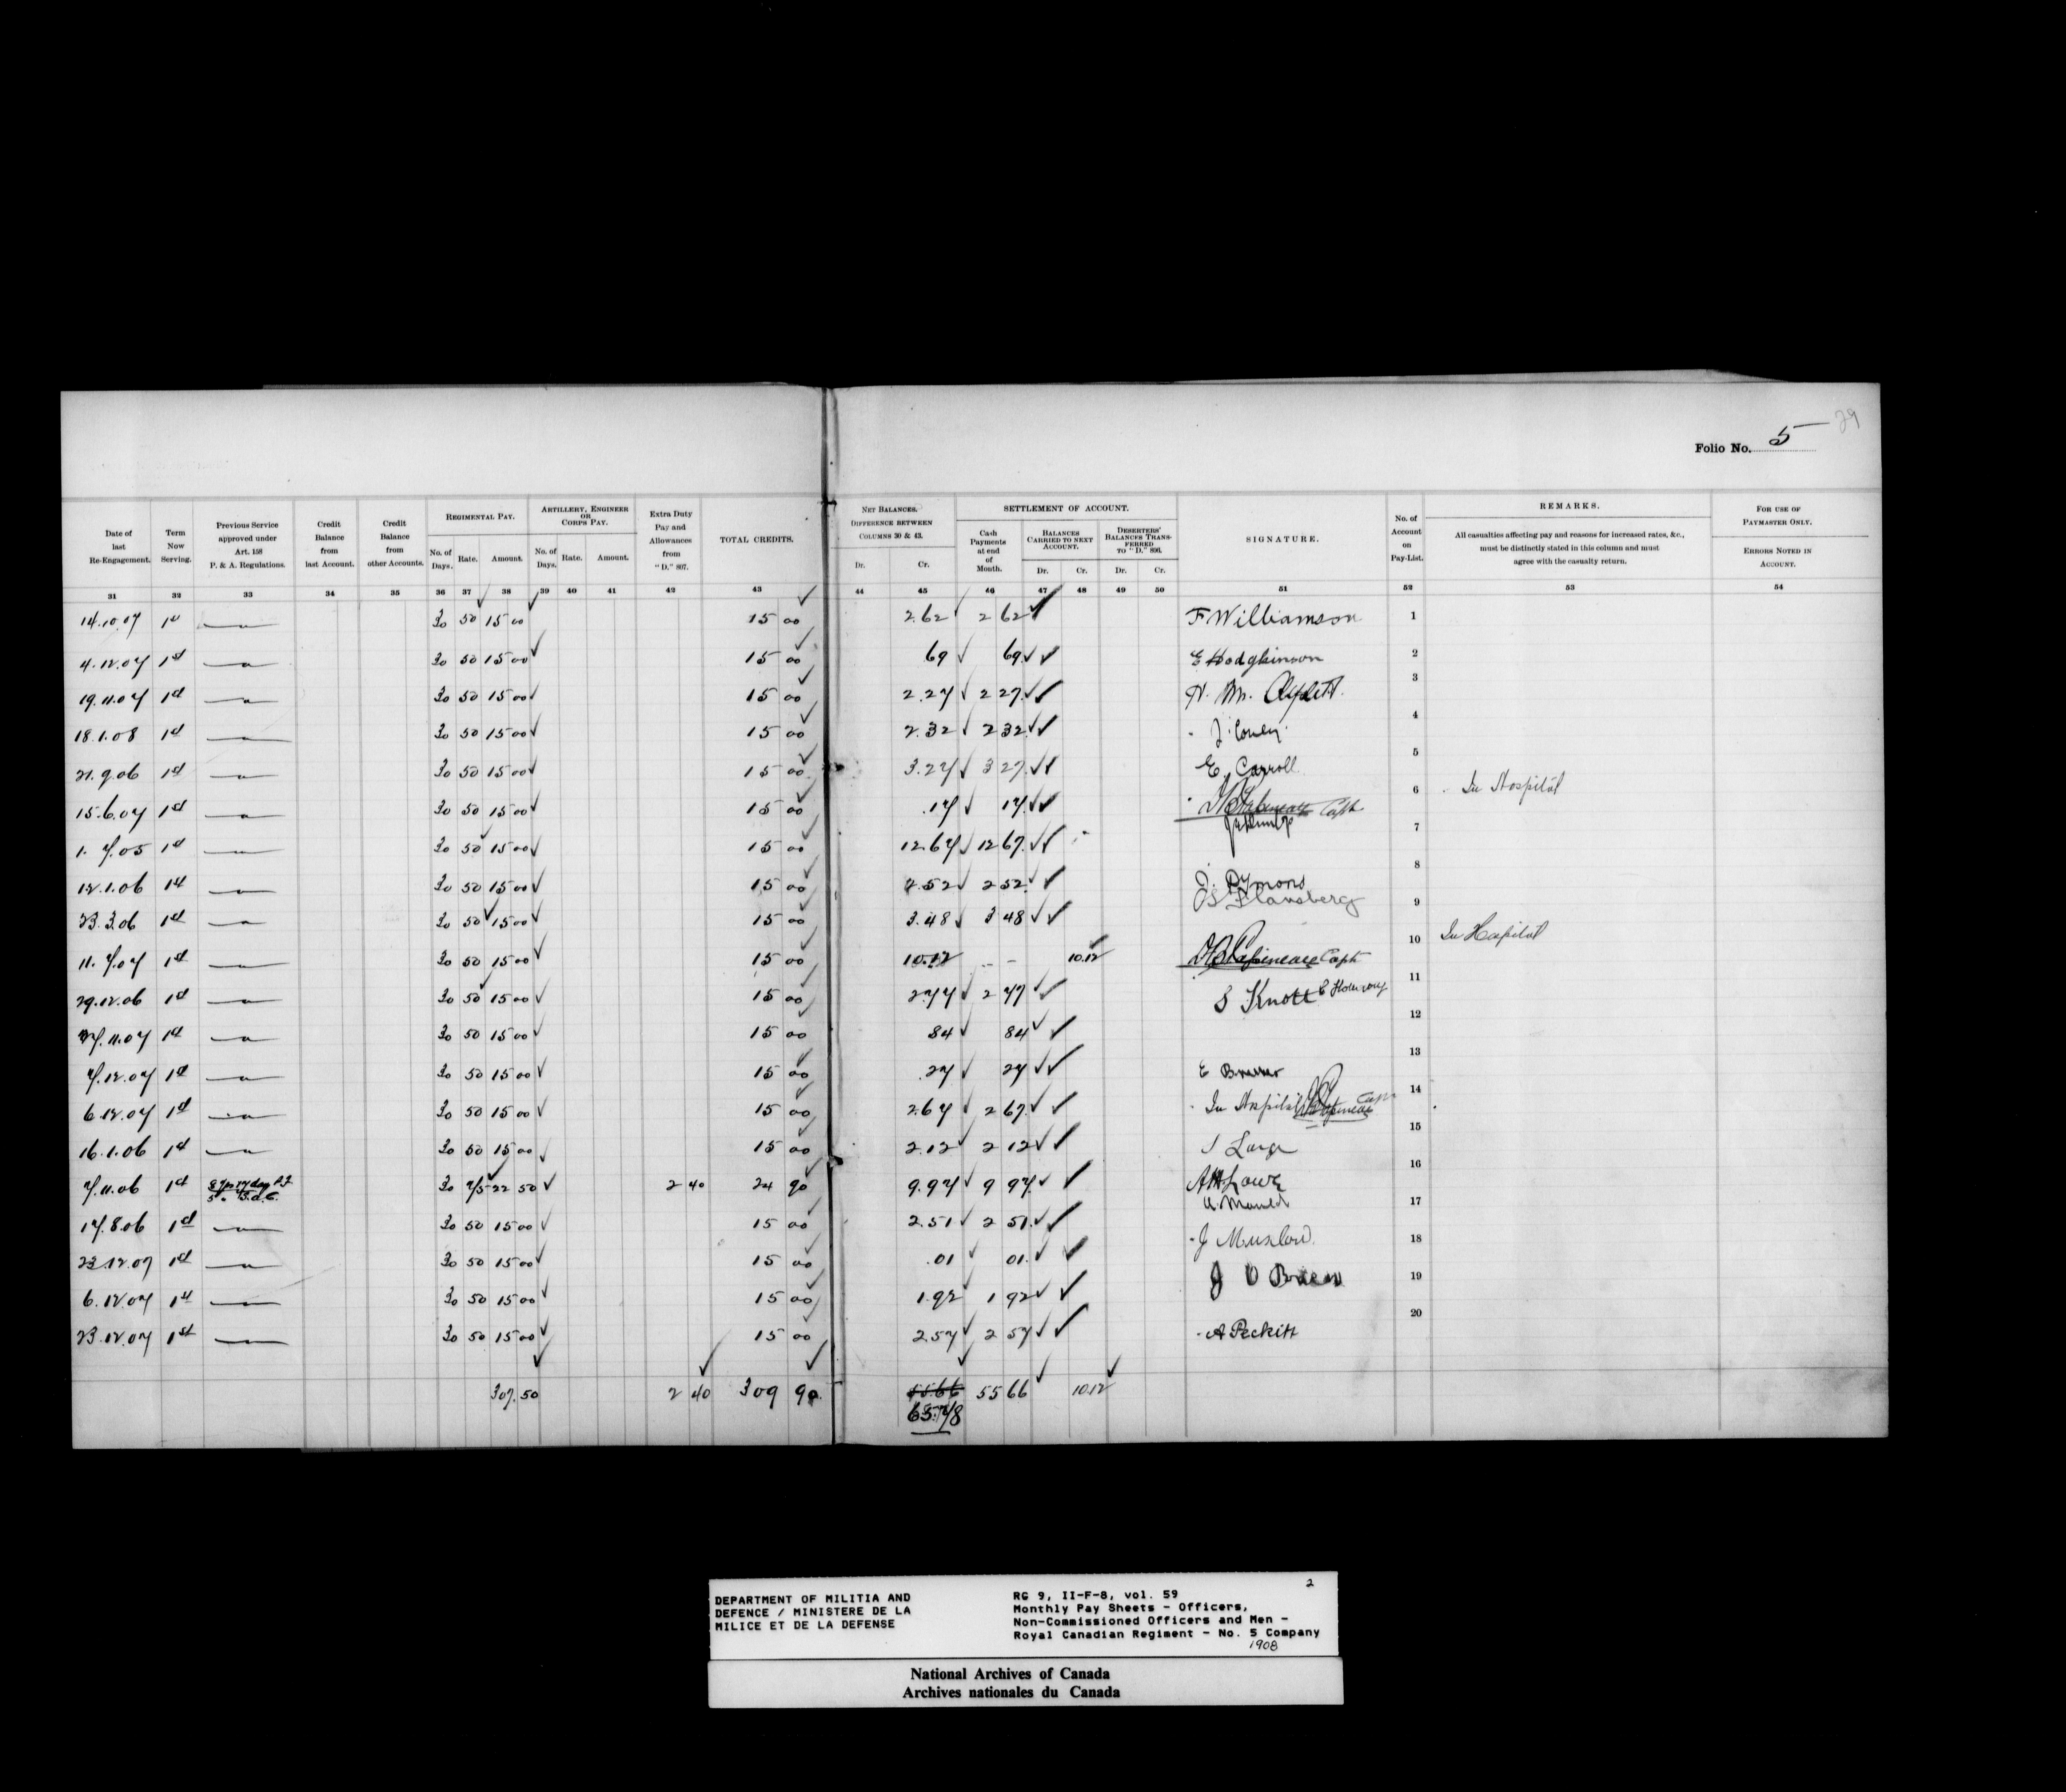 29
Folio No. 5
Date of last Re-Engagement. Term Now Serving. Previous Service approved under Art. 158 P. & A. Regulations. Credit Balance from last Account. Credit Balance from other Accounts. REGIMENTAL PAY. No. of Days. Rate. Amount. ARTILLERY, ENGINEER OR CORPS PAY. No. of Days. Rate. Amount. Extra Duty Pay and Allowances from "D." 807. TOTAL CREDITS. NET BALANCES. DIFFERENCE BETWEEN COLUMNS 30 & 43. Dr. Cr. SETTLEMENT OF ACCOUNT. Cash Payments at end of Month. BALANCES CARRIED TO NEXT ACCOUNT. Dr. Cr. DESERTERS' BALANCES TRANSFERRED TO "D." 806. Dr. Cr. SIGNATURE. No. of Account on Pay-List. REMARKS. All casualties affecting pay and reasons for increased rates, &c., must be distinctly stated in this column and must agree with the casualty return. FOR USE OF PAYMASTER ONLY. ERRORS NOTED IN ACCOUNT.
31 32 33 34 35 36 37 38 39 40 41 42 43 44 45 46 47 48 49 50 51 52 53 54
14.10.07 1st 30 50 15 00 15 00 2.62 2 62 F Williamson 1
4.12.07 1st 30 50 15 00 15 00 69 69 E Hodgkinson 2
19.11.07 1st 30 50 15 00 15 00 2.27 2 27 3
18.1.08 1st 30 50 15 00 15 00 2.32 2 32 4
21.9.06 1st 30 50 15 00 15 00 3.27 3 27 E. Carroll 5
15.6.07 1st 30 50 15 00 15 00 .17 17 Capt 6 In Hospital
1.7.05 1st 30 50 15 00 15 00 12.67 12 67 7
12.1.06 1st 30 50 15 00 15 00 2.52 2 52 J. Symons 8
23.3.06 1st 30 50 15 00 15 00 3.48 3 48 Flansberg 9
11.7.07 1st 30 50 15 00 15 00 10.12 - - 10.12 Papineau Capt 10 In Hospital
29.12.06 1st 30 50 15 00 15 00 2.47 2 47 S Knott 11
27.11.07 1st 30 50 15 00 15 00 84 84 12
7.12.07 1st 30 50 15 00 15 00 .27 27 E 13
6.12.07 1st 30 50 15 00 15 00 2.67 2 67 In Hospital Papineau Capt 14
16.1.06 1st 30 50 15 00 15 00 2.12 2 12 Large 15
7.11.06 1st 30 75 22 50 2 40 24 90 9.97 9 97 Lowe 16
17.8.06 1st 30 50 15 00 15 00 2.51 2 51 Mould 17
23.12.07 1st 30 50 15 00 15 00 .01 01 J Muxlow. 18
6.12.07 1st 30 50 15 00 15 00 1.92 1 92 J O Brien 19
23.12.07 1st 30 50 15 00 15 00 2.57 2 57 A Peckitt 20
307.50 2 40 309 90 55.66 55 66 10.12
65.78
DEPARTMENT OF MILITIA AND
DEFENCE / MINISTERE DE LA
MILICE ET DE LA DEFENSE
2
RG 9, II-F-8, vol. 59
Monthly Pay Sheets - Officers,
Non-Commissioned Officers and Men -
Royal Canadian Regiment - No. 5 Company
1908
National Archives of Canada
Archives nationales du Canada